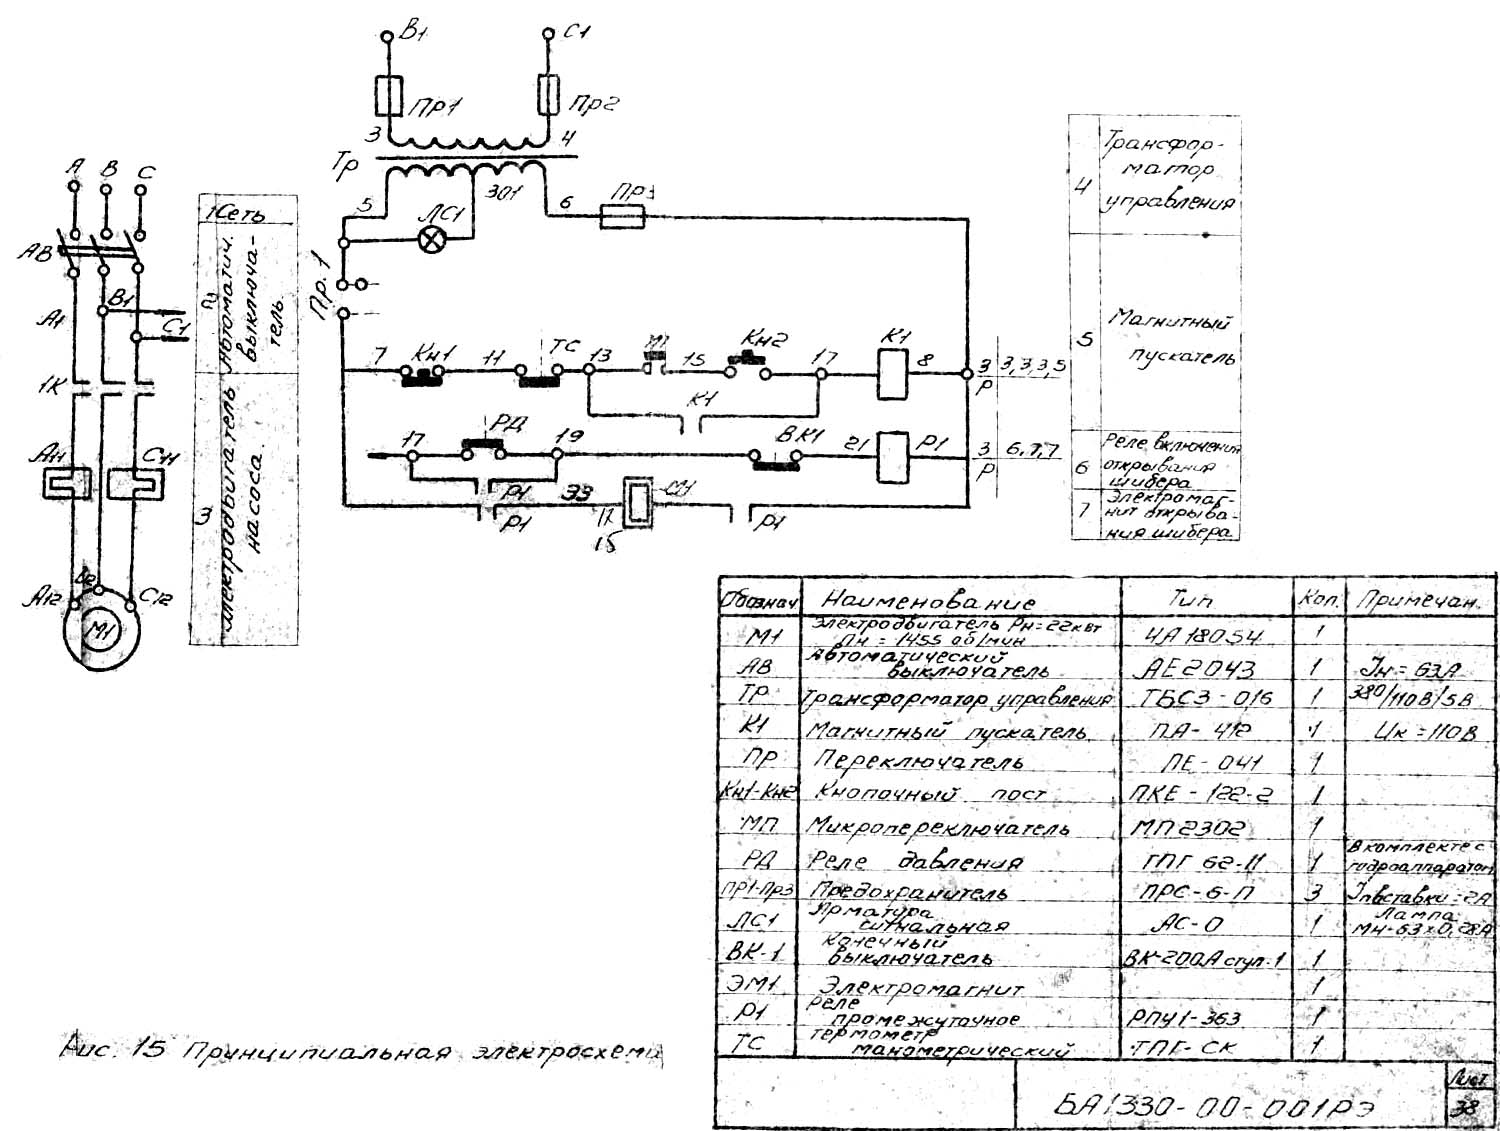 В1
С1
Пр1
Пр2
3
4
Тр
301
5
6
Пр3
ЛС1
Пр. 1
А В С
АВ
В1
А1
С1
1К
А11
С11
А12
В2
С12
М1
1 Сеть
2 Автоматич. выключа-
тель
3 Электродвигатель
насоса.
7 Кн1 11 ТС 13 МП 15 Кн2 17 К1 8
К1
3 3,3,3,5
Р
17 РД 19 ВК1 21 Р1
3 6,7,7
Р
Р1
Р1
33
17
15
Р1
4
Трансфор-
матор
управления
5
Магнитный
пускатель
6
Реле включения
открывания
шибера
7
Электромаг-
нит открыва-
ния шибера
Обознач Наименование Тип Кол. Примечан.
М1 Электродвигатель Рн=22квт
Пн = 1455 об/мин 4А180S4 1
АВ Автоматический
выключатель АЕ2043 1 Iн = 63А
ТР Трансформатор управления ТБС3-0,16 1 380/110В/5В
К1 Магнитный пускатель ПА-412 1 Uк=110В
ПР Переключатель ПЕ-041 1
Кн1-Кн2 Кнопочный пост ПКЕ-122-2 1
МП Микропереключатель МП2302 1
РД Реле давления ТПГ 62-11 1 В комплекте с
гидроаппаратом
ПР1-Пр3 Предохранитель ПРС-6-П 3 Iпвставки=2А
ЛС1 Арматура
сигнальная АС-0 1 Лампа
МН-6,3х0,28А
ВК-1 Конечный
выключатель ВК-200А ступ.1 1
ЭМ1 Электромагнит 1
Р1 Реле
промежуточное РПУ1-363 1
ТС термометр
манометрический ТПГ-СК 1
Рис. 15 Принципиальная электросхема
БА1330-00-001РЭ
Лист
38